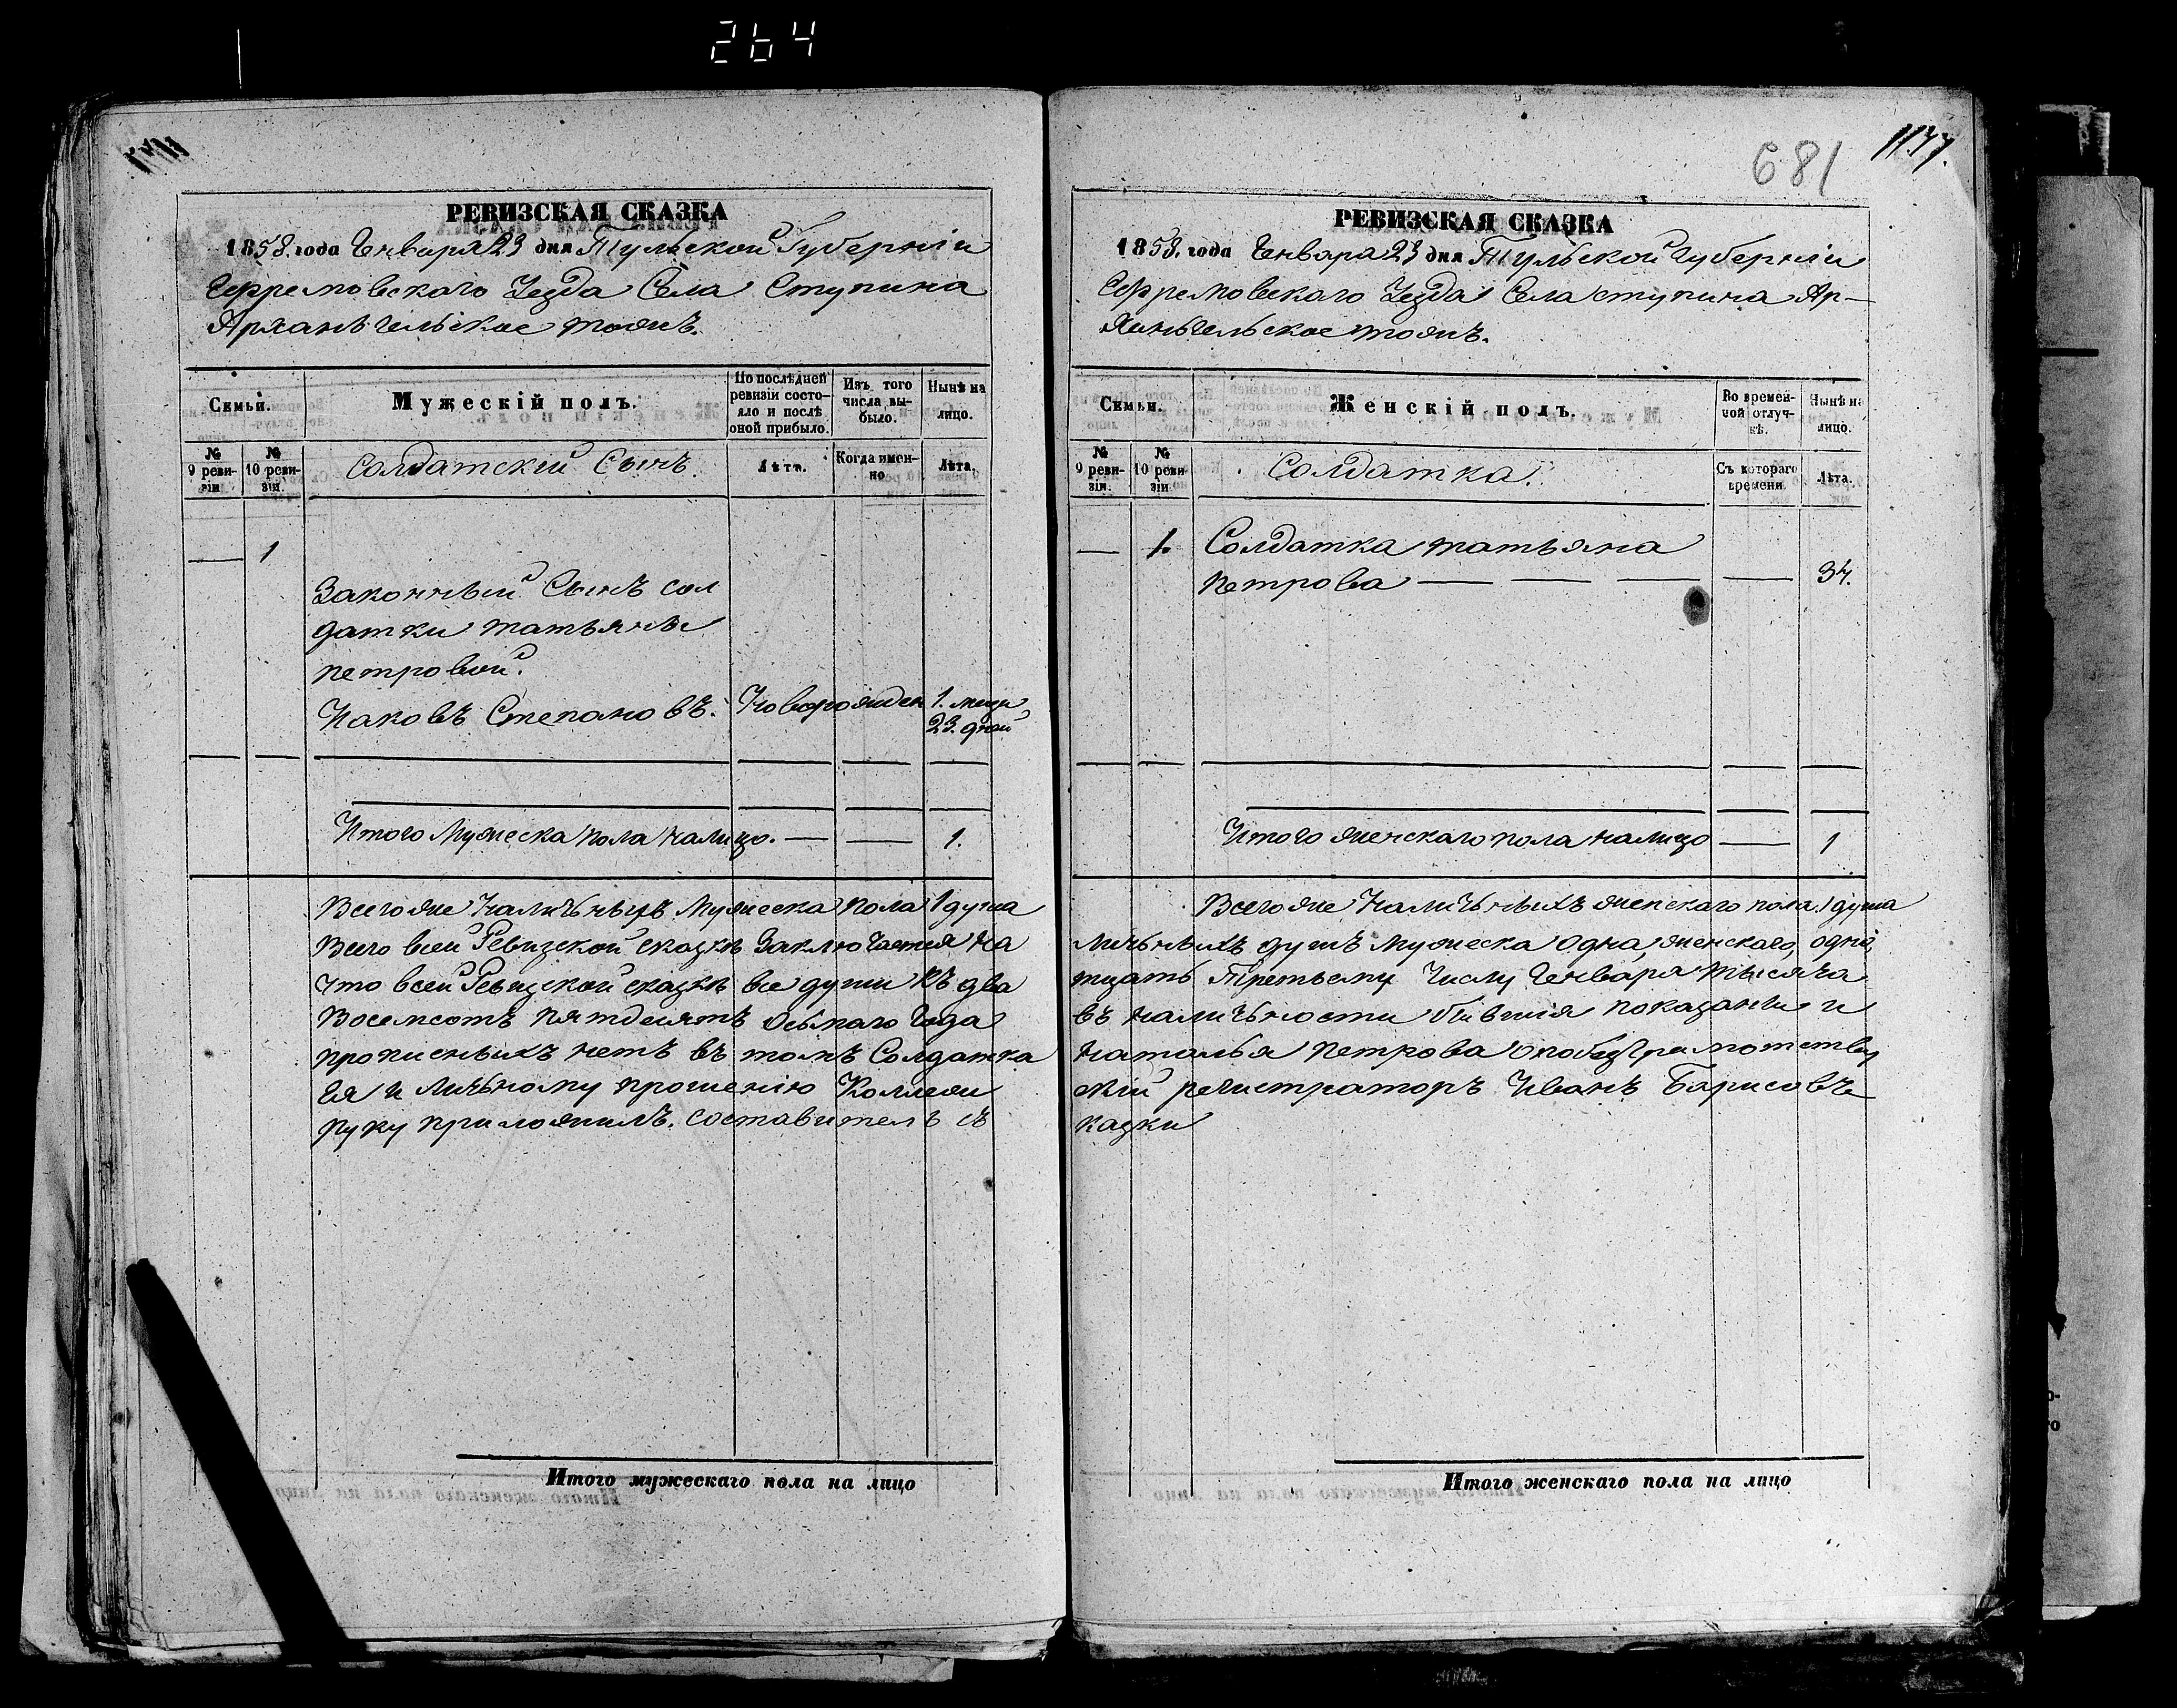 264
681
РЕВИЗСКАЯ СКАЗКА
1858. года Генваря 23 дня Тульской Губерніи
Ефремовскаго Уезда Села Ступина
Арханьгельское тожъ.
Семьи.
Мужескій полъ.
По послѣдней ревизіи состояло и послѣ оной прибыло.
Изъ того числа выбыло.
Нынѣ на лицо.
№ 9 ревизіи
№ 10 ревизіи.
Солдатский Сынъ
Лѣта.
Когда именно
Лѣта.
— 1
Законный Сынъ сол
датки татьяны
петровой.
Иаковъ Степановъ. Новорожден 1. месяц
23. дней
Итого Мужеска пола налицо. — — 1.
Всегоже Наличьныхъ Мужеска пола 1 душа
Всего всей Ревизской сказкѣ Заключается На
Что всей Ревизской сказкѣ все души Къ два
Восемсотъ пятдесятъ Осьмаго Года
прописныхъ нетъ въ томъ Солдатка
Ея и Личьному прошению Коллежи
руку приложилъ. составителъ съ
РЕВИЗСКАЯ СКАЗКА
1858. года Генваря 23 дня Тульской Губерніи
Ефремовскаго Уезда Села ступина Ар-
ханьгельское тожъ.
Семьи.
Женскій полъ.
Во временной отлучкѣ.
Нынѣ на лицо.
№ 9 ревизіи.
№ 10 ревизіи
Солдатка.
Съ котораго времени
Лѣта.
— 1. Солдатка татьяна
петрова — — — — 34.
Итого женскаго пола налицо — 1
Всегоже Наличьныхъ женскаго пола. 1 душа
личьныхъ душъ мужеска одна, женскаго, одна,
тцать Третьему Числу Генваря тысяча
въ наличьности бывшия показанни и
Наталья петрова
скій регистраторъ Иванъ Барисовъ
казки
Итого мужескаго пола на лицо
Итого женскаго пола на лицо